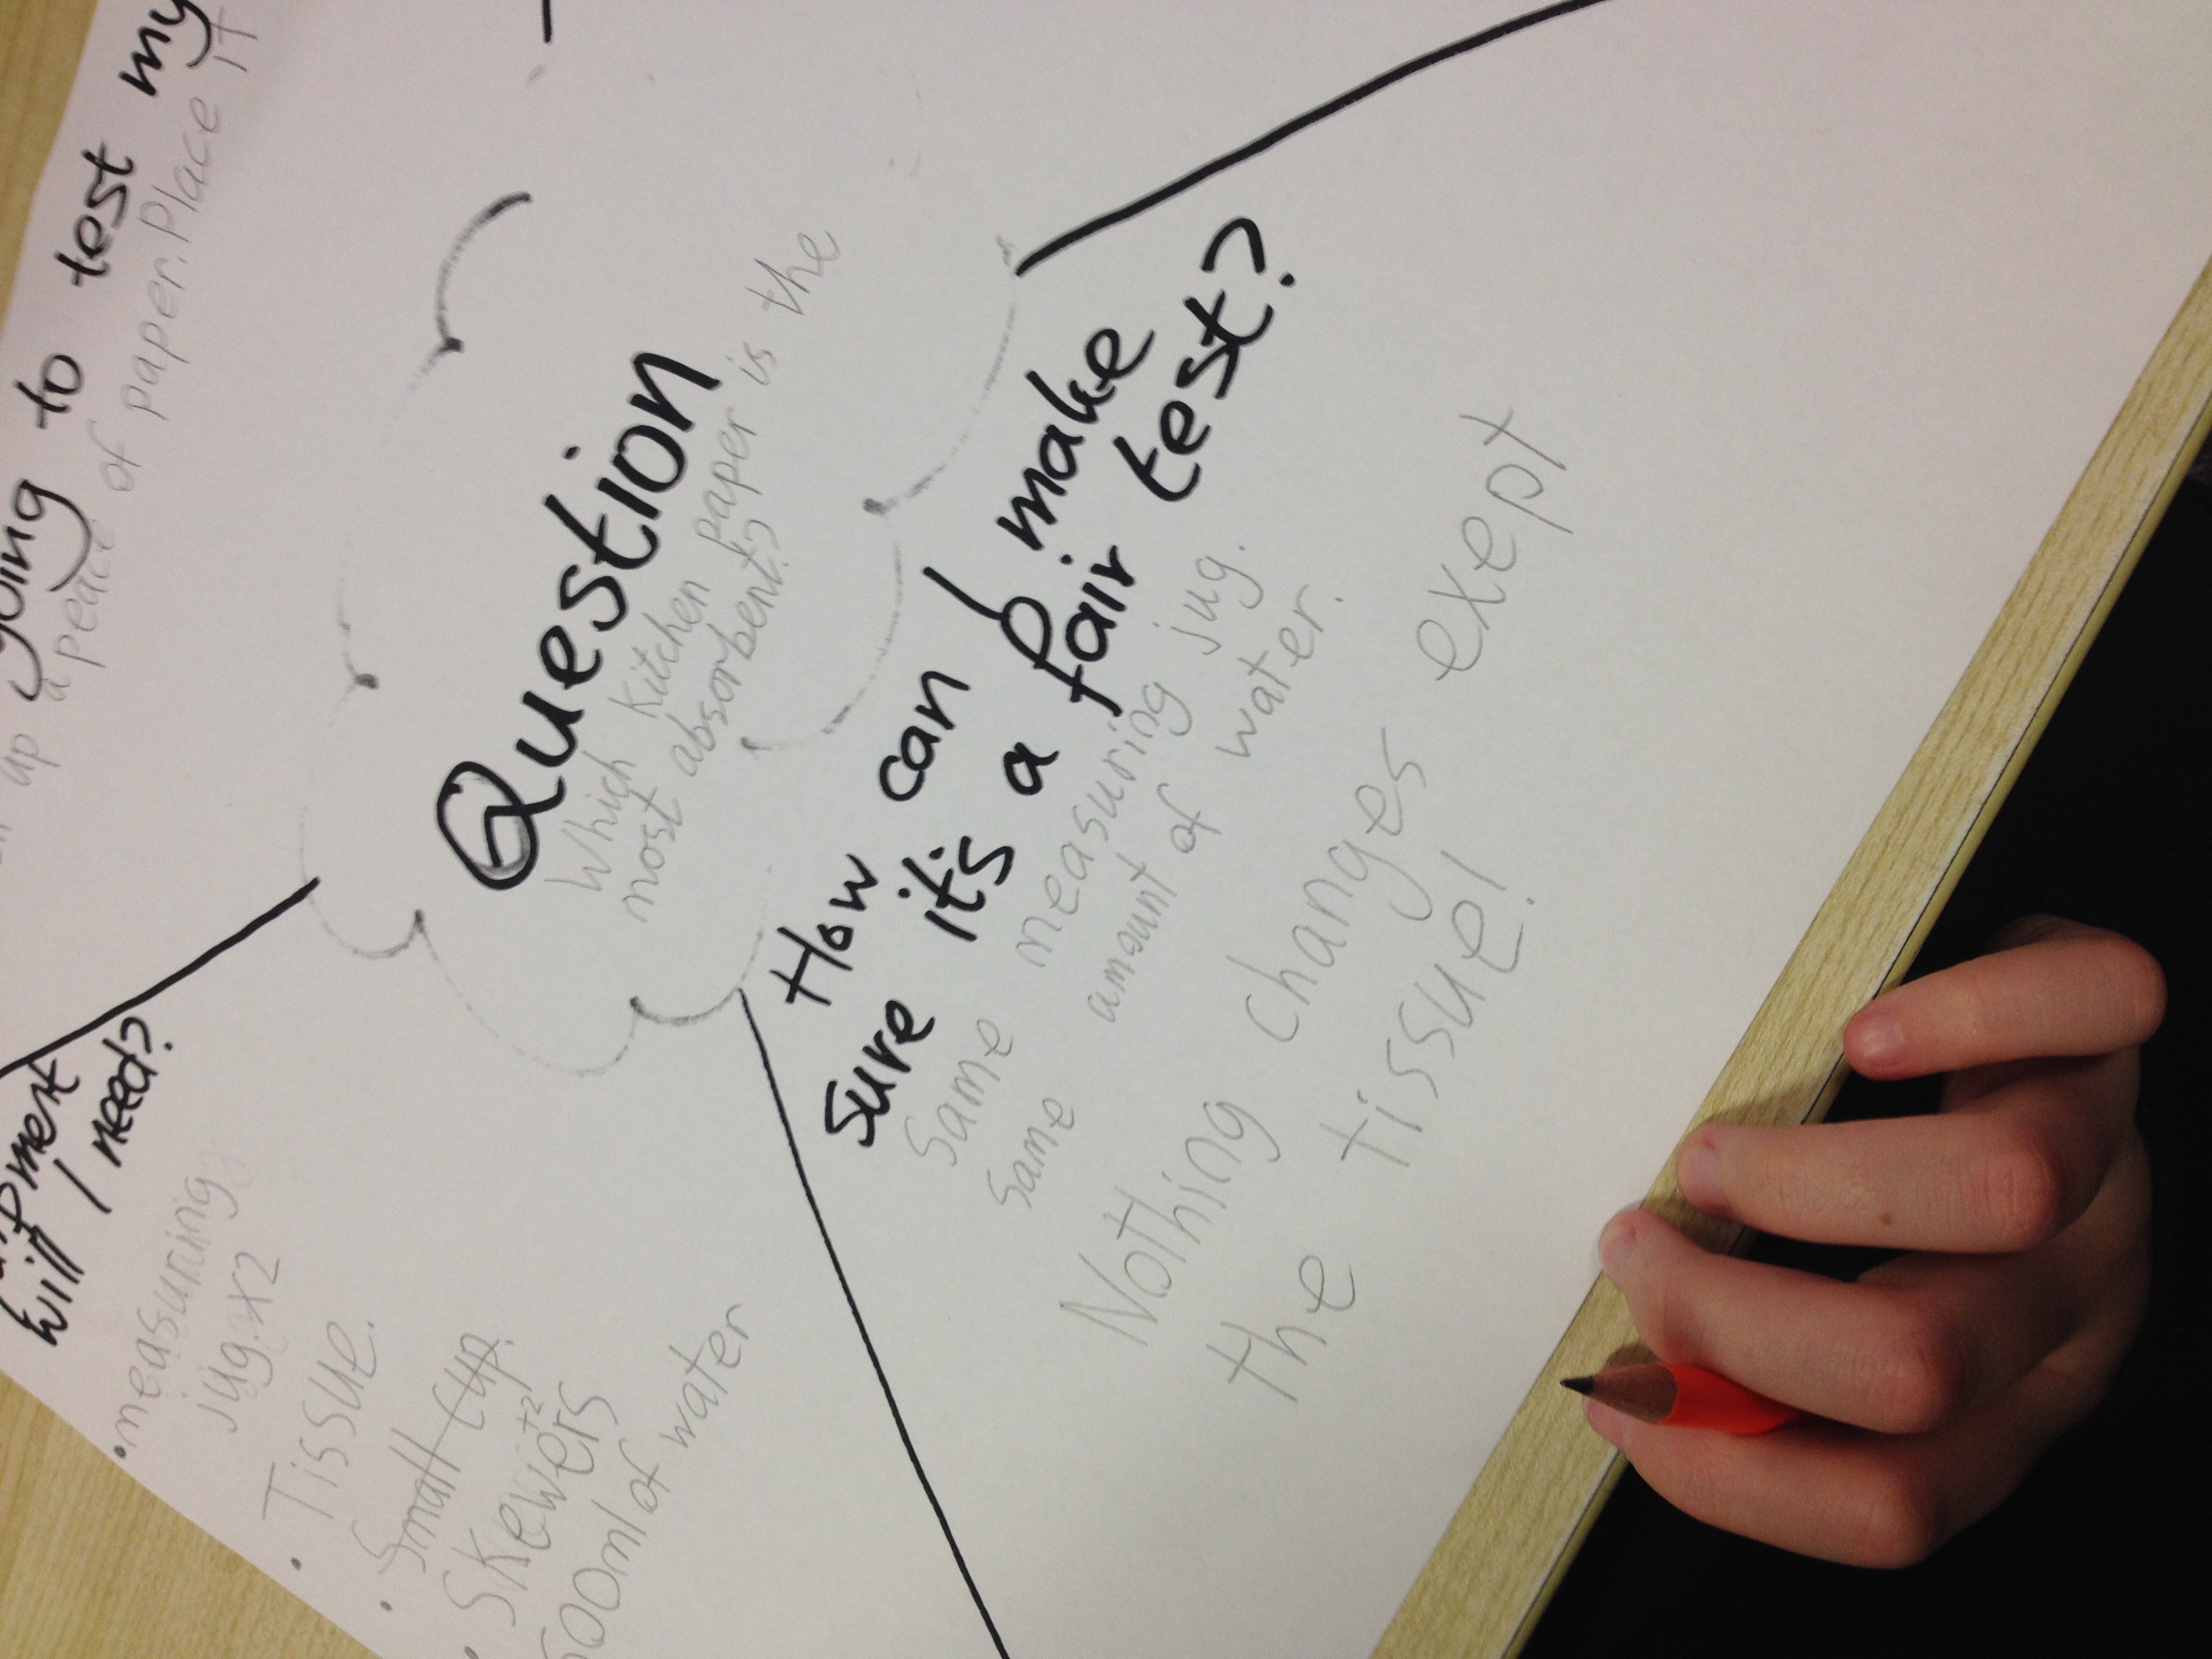 going to test my
up a peace of paper. Place it
Question
Which kitchen paper is the
most absorbent?
How can I make
sure it's a fair test?
Same measuring jug.
Same amount of water.
Nothing changes exept
the tissue!
will I need?
• measuring
jug x2
• Tissue.
• Small cup.
• Skewers +2
500ml of water